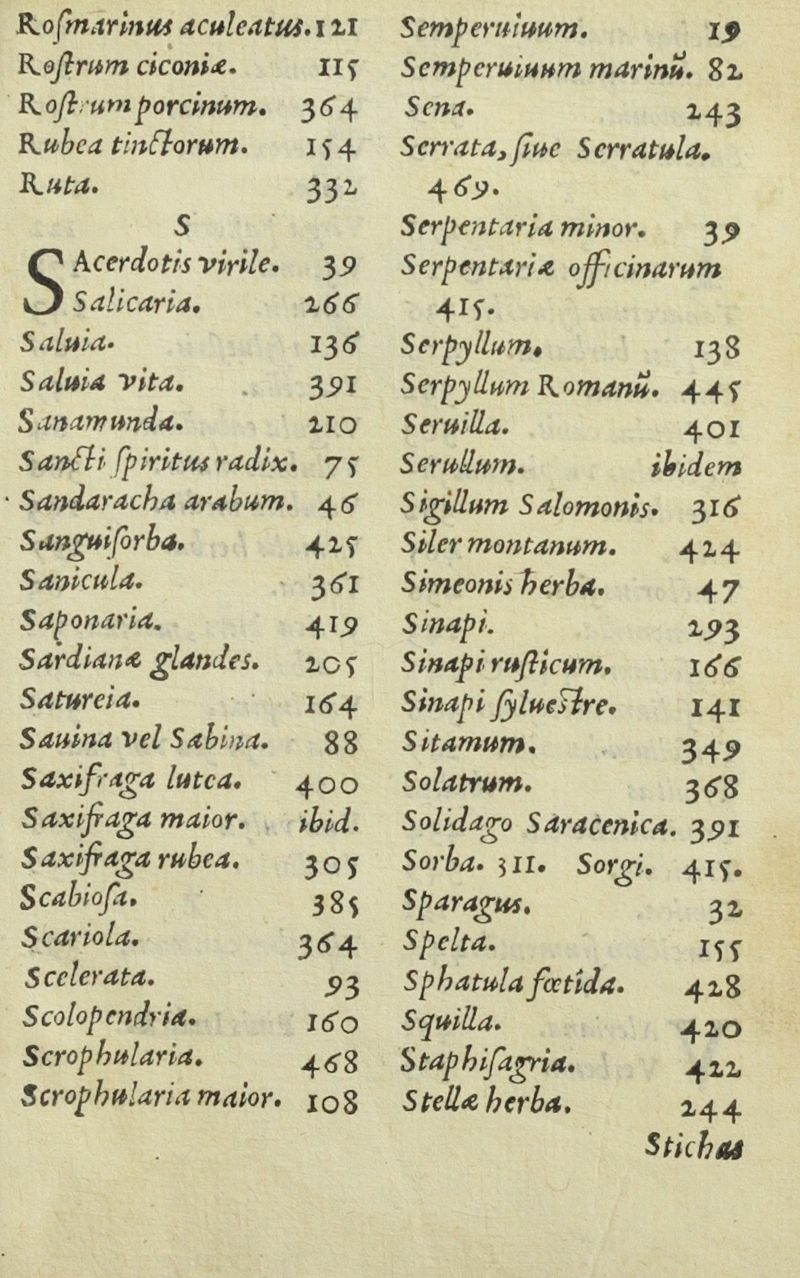 Roſmarinus aculeatus. 121
Roſtrum ciconiæ. 115
Roſtrum porcinum. 364
Rubea tinctorum. 154
Ruta. 332
S
SAcerdotis virile. 39
Salicaria. 266
Saluia. 136
Saluia vita. 391
Sanamunda. 210
Sancti ſpiritus radix. 75
Sandaracha arabum. 46
Sanguiſorba. 425
Sanicula. 361
Saponaria. 419
Sardianæ glandes. 205
Satureia. 164
Sauina vel Sabina. 88
Saxifraga lutea. 400
Saxifraga maior. ibid.
Saxifraga rubea. 305
Scabioſa. 385
Scariola. 364
Scelerata. 93
Scolopendria. 160
Scrophularia. 468
Scrophularia maior. 108
Semperuiuum. 19
Semperuiuum marinũ. 82
Sena. 243
Serrata, ſiue Serratula.
469.
Serpentaria minor. 39
Serpentariæ officinarum
415.
Serpyllum. 138
Serpyllum Romanũ. 445
Seruilla. 401
Serullum. ibidem
Sigillum Salomonis. 316
Siler montanum. 424
Simeonis herba. 47
Sinapi. 293
Sinapi ruſticum. 166
Sinapi ſylueſtre. 141
Sitamum. 349
Solatrum. 368
Solidago Saracenica. 391
Sorba. 311. Sorgi. 415.
Sparagus. 32
Spelta. 155
Sphatula fœtida. 428
Squilla. 420
Staphiſagria. 422
Stellæ herba. 244
Stichas